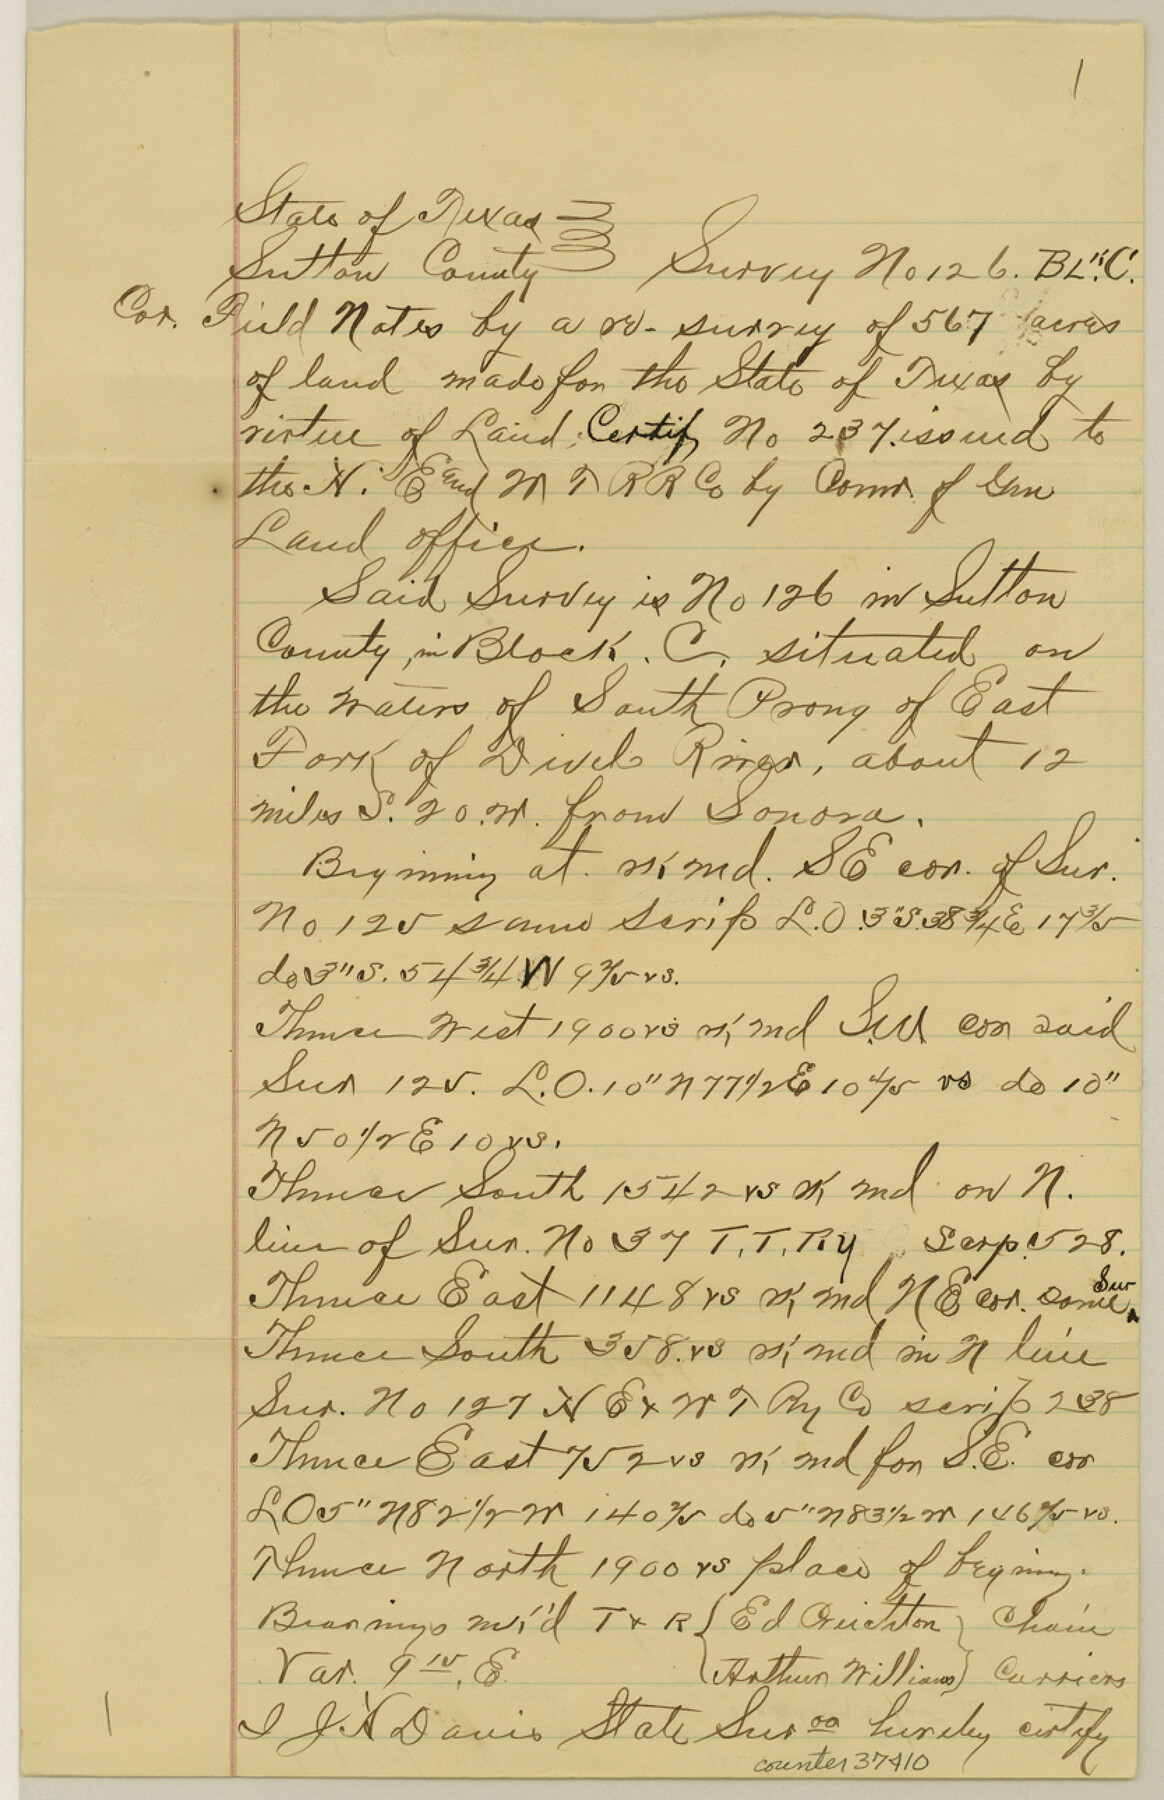 1
State of Texas
Sutton County Survey No 126. Blk. C.
Cor. Field Notes by a re-survey of 567 acres
of land made for the State of Texas by
virtue of Land Certif, No 237. issued to
the N. E and W T R R Co by Comr. of Gen
Land office.
Said Survey is No 126 in Sutton
County, in Block. C. situated on
the waters of South Prong of East
Fork of Divels River, about 12
miles S. 20. W. from Sonora.
Begining at st md. SE cor. of Sur.
No 125 same scrip L.O. 3" S. 38 3/4 E 17 3/5
do 3" S. 54 3/4 W 9 2/5 vs.
Thence West 1900 vs st md S.W. cor said
Sur 125. L.O. 10" N 77 1/2 E 10 4/5 vs do 10"
N 50 1/2 E 10 vs.
Thence South 1542 vs st md on N.
line of Sur. No 37 T. T. Ry Scrp. 528.
Thence East 1148 vs st md NE cor. same Sur
Thence South 358. vs st md in N line
Sur. No 127 N E & W T Ry Co scrip 238
Thence East 752 vs st md for S.E. cor
L O 5" N 82 1/2 W 140 2/5 do 5" N 83 1/2 W 146 4/5 vs.
Thence North 1900 vs place of begining.
Bearings mk'd T & R { Ed Creichton } Chain
Var. 9 15, E. { Arthur Williams } Carriers
1 I J. N Davis State Sur or hereby certify
counter 37410